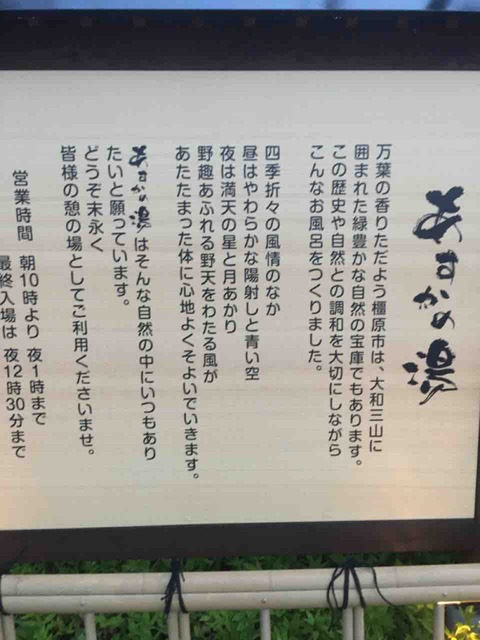 あすかの湯
万葉の香りただよう橿原市は、大和三山に
囲まれた緑豊かな自然の宝庫でもあります。
この歴史や自然との調和を大切にしながら
こんなお風呂をつくりました。
四季折々の風情のなか
昼はやわらかな陽射しと青い空
夜は満天の星と月あかり
野趣あふれる野天をわたる風が
あたたまった体に心地よくそよいでいきます。
あすかの湯はそんな自然の中にいつもあり
たいと願っています。
どうぞ末永く
皆様の憩の場としてご利用くださいませ。
営業時間 朝10時より 夜1時まで
最終入場は 夜12時30分まで